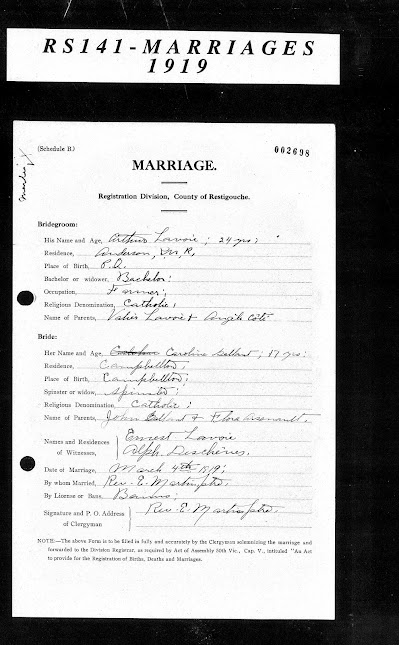 RS141-MARRIAGES
1919
(Schedule B.)
002698
MARRIAGE.
Registration Division, County of Restigouche.
Bridegroom:
His Name and Age, Arthur Lavoie; 24 yrs;
Residence, Anderson,
Place of Birth, P.Q.
Bachelor or widower, Bachelor:
Occupation, Farmer;
Religious Denomination, Catholic;
Name of Parents, Lavoie & Angèle Côté
Bride:
Her Name and Age, Caroline Gallant; 17 yrs:
Residence, Campbellton,
Place of Birth, Campbellton;
Spinster or widow, Spinster
Religious Denomination, Catholic;
Name of Parents, John Gallant & Flora Arsenault.
Names and Residences
of Witnesses,
Ernest Lavoie
Alph. Deschènes.
Date of Marriage, March 4th 1919;
By whom Married, Rev. E.
By License or Bans, Banns;
Signature and P. O. Address
of Clergyman
Rev. E.
NOTE:—The above Form is to be filled in fully and accurately by the Clergyman solemnizing the marriage and
forwarded to the Division Registrar, as required by Act of Assembly 50th Vic., Cap. V., intituled "An Act
to provide for the Registration of Births, Deaths and Marriages.